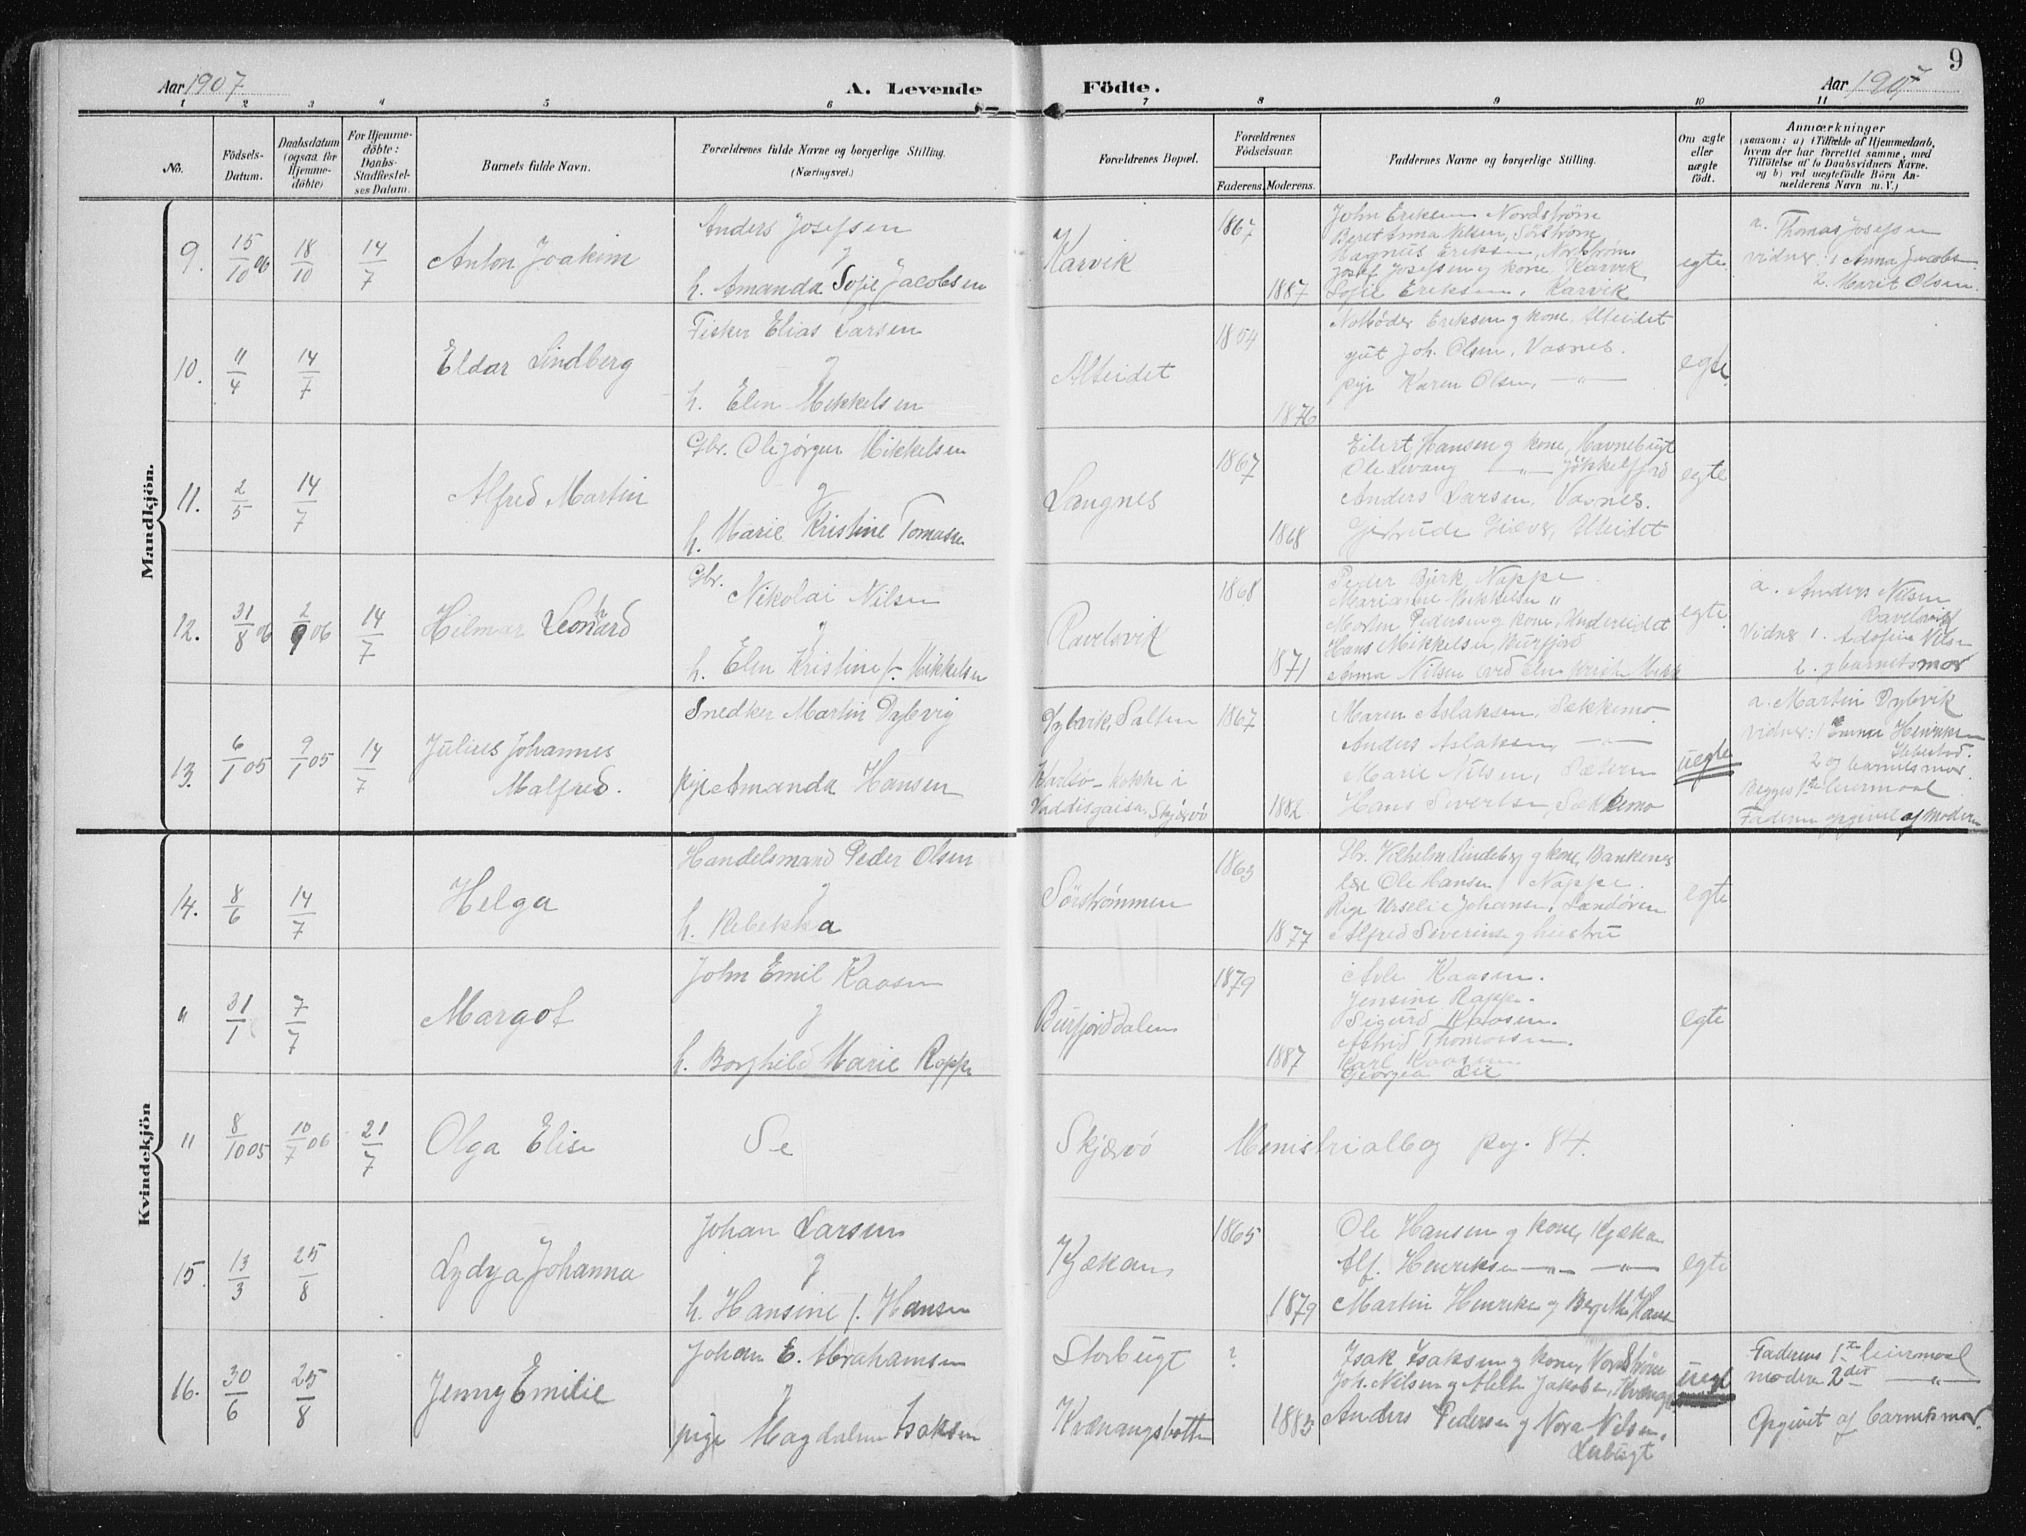 9
Aar 1907 A. Levende Födte. Aar 1907
1 2 3 4 5 6 7 8 9 10 11
No. Födsels-Datum. Daabsdatum (ogsaa for Hjemme-döbte) For Hjemme-döbte: Daabs-Stadfæstel-ses Datum. Barnets fulde Navn. Forældrenes fulde Navne og borgerlige Stilling. (Næringsvei.) Forældrenes Bopæl. Forældrenes Födselsaar. Faderens. Moderens. Faddernes Navne og borgerlige Stilling. Om ægte eller uægte født. Anmærkninger (saasom: a) i Tilfælde af Hjemmedaab, hvem der har forrettet samme, med Tilföielse af to Daabsvidners Navne, og b) ved uægtefödte Börn An-melderens Navn m. V.)
Mandkjön.
9. 15/10 06 18/10 14/7 Anton Joakim
Anders Josefsen
g
h. Amanda Sofie Jacobsen
Karvik
1867
1887
John Eriksen Nordstrøm
Beret Anna Nilsen, Sørstrøm
Magnus Eriksen, Nordstrøm
Josef Josefsen g kone Karvik
Sofie Eriksen, Karvik
egte
a. Thomas Josefsen
vidner: 1 Anna Jacobs.
2. Marit Olsen.
10. 11/4 14/7 Eldar Lindberg
Fisker Elias Larsen
g
h. Elen Mikkelsen
Alteidet
1854
1876
Eriksen g kone, Alteidet
gut Joh. Olsen, Vasnes.
pige Karen Olsen, — " —
egte
11. 2/5 14/7 Alfred Martin
Gbr. Ole Jørgen Mikkelsen
g
h. Marie Kristine Tomasen
Langnes
1867
1868
Eilert Hansen g kone, Havnebugt
Ole Levang — " — Jøkkelfjord
Anders Larsen, Vasnes.
Gjertrude Giæver, Alteidet
egte
12. 31/8 06 2/9 06 14/7 Hilmar Leonhard
Gbr. Nikolai Nilsen
"
h. Elen Kristine f. Mikkelsen
Ravelsvik
1868
1871
Peder Bjørk, Nappe.
Marianne Mikkelsen "
Morten Pedersen g kone, Undereidet
Hans Mikkelsen, Burfjord
Anna Nilsen
egte
a. Anders Nilsen
Ravelsvik
vidner 1. Adolfine Nils
2. g barnets mor
13. 6/1 05 9/1 05 14/7 Julius Johannes
Malfred.
Snedker Martin Dybvig
pige Amanda Hansen
Dybvik, Salten
kokke i
Vaddisgaisa, Skjærvö
1867
1882
Maren Aslaksen, Sækkemo
Anders Aslaksen, — " —
Marie Nilsen,
Hans Sivertsen, Sækkemo
uegte
a. Martin Dybvik
vidner: 1 Emma Henriksen
Ibbestad.
2 og barnets mor.
Begges 1ste leiermaal
Faderen opgivet af moderen
Kvindekjön
14. 8/6 14/7 Helga
Handelsmand Peder Olsen
g
h. Rebekka
Sörströmmen
1863
1877
Gbr. Vilhelm Lindeberg g kone, Bankenes
Ole Hansen, Nappe.
Pige Urselie Johansen,
Alfred Siverinsen g hustru
egte
" 31/1 7/7 Margot
John Emil Kaasen
g
h. Borghild Marie Rappe
Burfjorddalen
1879
1887
Kaasen.
Jensine Rappe.
Sigurd Kaasen.
Astrid Thomassen.
Karl Kaasen
Georgea Lie
egte
" 8/10 05 10/7 06 21/7 Olga Elise
Se Skjærvö Menistrialbog pag. 84.
15. 13/3 25/8 Lydya Johanna
Johan Larsen
g
h. Hansine f. Hansen
Kjækan
1865
1879
Ole Hansen g kone, Kjækan
Alf. Henriksen — " — — " —
Martin Henriksen g Bergitte Hans
egte
16. 30/6 25/8 Jenny Emilie
Johan E. Abrahamsen
g
pige Magdalene Isaksen
Storbugt
Kvænangsbotten
?
1883
Isak Isaksen g kone, Nordstrøm
Joh. Nilsen g Jakobsen, Kvænangsb
Anders Pedersen g Nora Nilsen,
Lerbugt
uegte
Faderens 1ste leiermaal
modern 2det — " —
Opgivet af barnets mor.